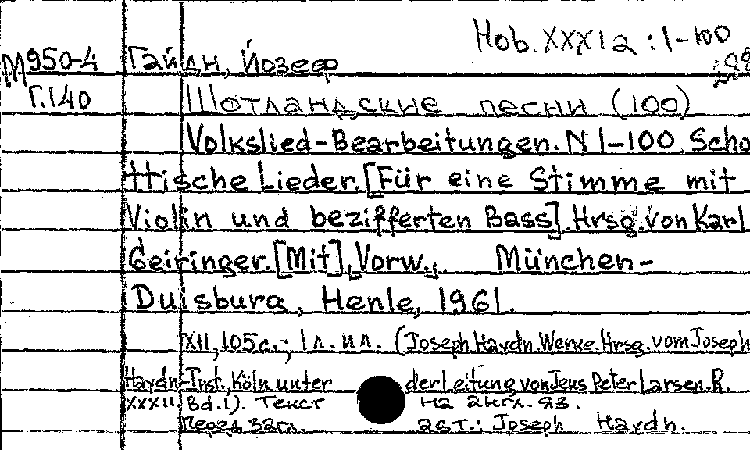 Hob. XXXIa : 1-100
М950-4 Гайдн, Йозеф
Г.140 Шотландские песни (100)
Volkslied-Bearbeitungen. N 1-100 Scho
ttische Lieder. [Für eine Stimme mit
Violin und bezifferten Bass]. Hrsg. von Karl
Geiringer. [Mit] Vorw.,. München-
Duisburg, Henle, 1961.
XII, 105 с.; 1 л. ил. (Joseph Haydn. Werke. Hrsg. vom Joseph
Haydn-Inst., Köln unter der Leitung von Jens Peter Larsen. R.
XXXII, Bd. 1). Текст на англ. яз.
Перед загл. авт.: Joseph Haydn.